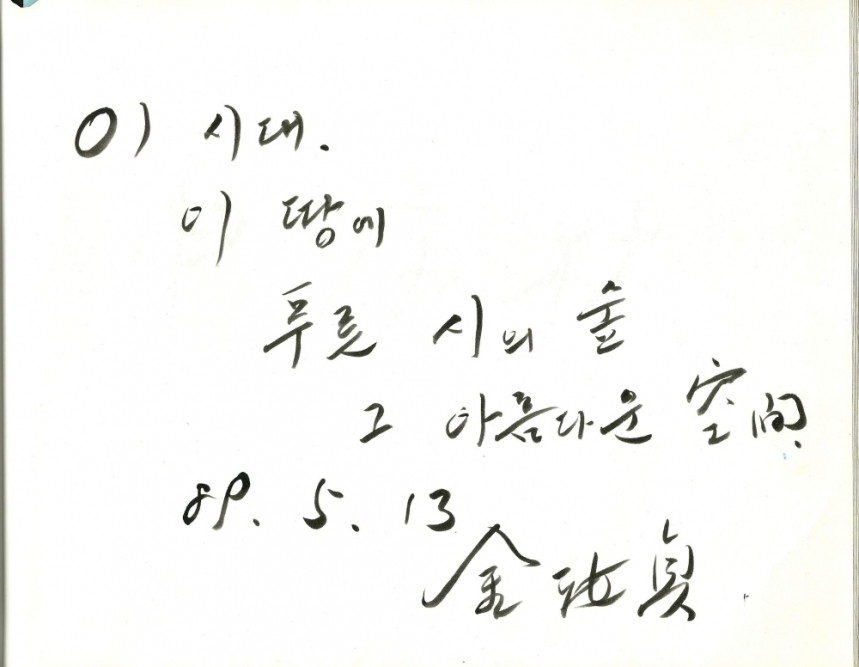 이 시대.
이 땅에
푸른 시의 숲
그 아름다운 空間.
89. 5. 13
金汝貞